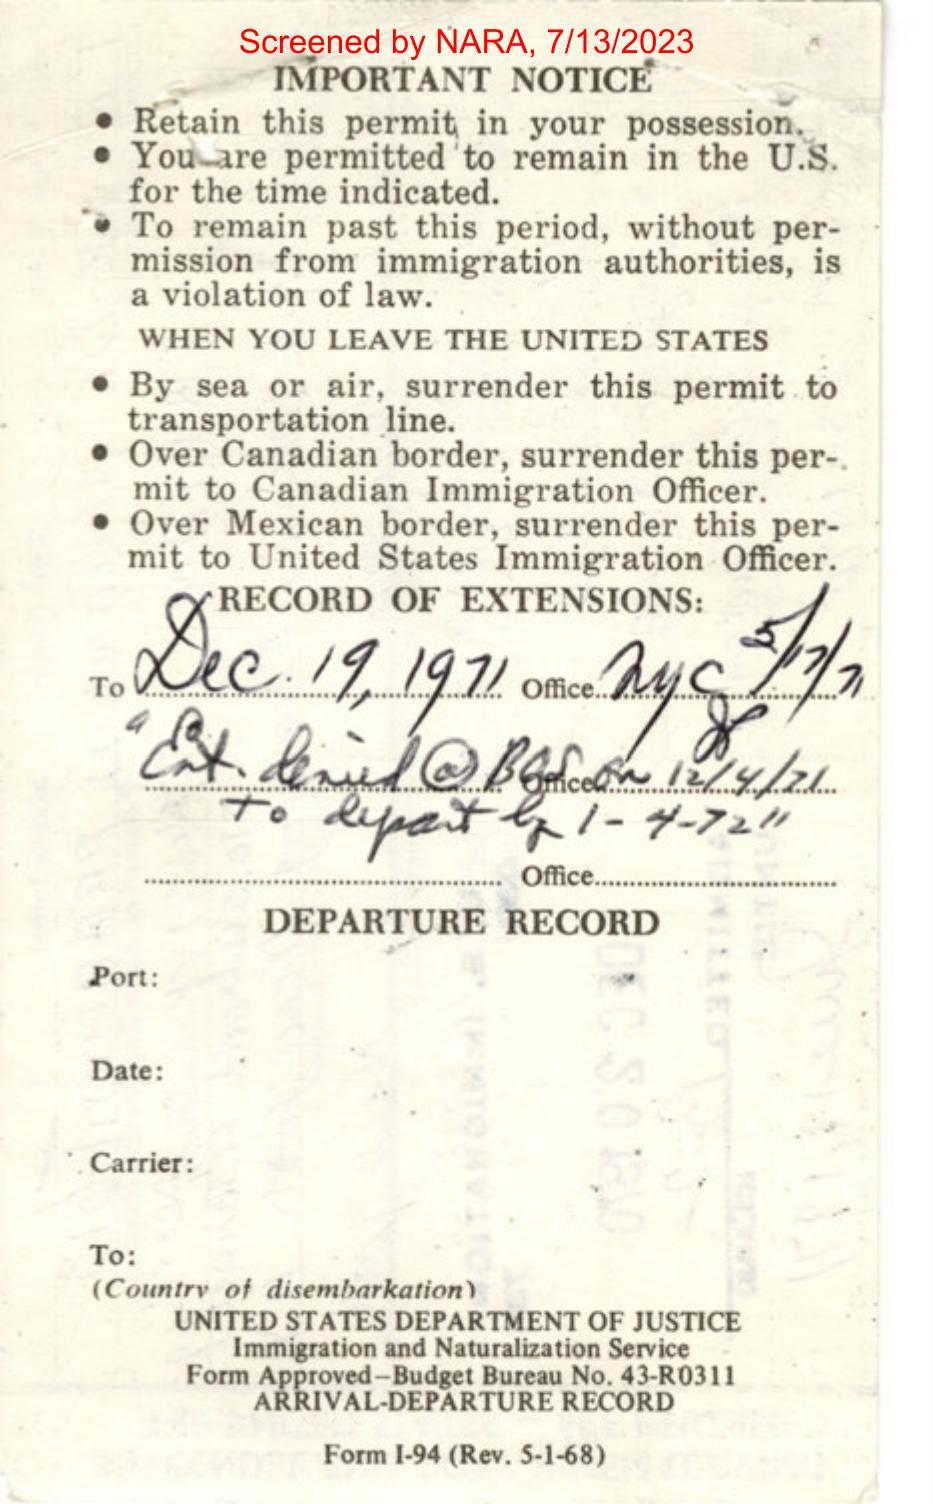 Screened by NARA, 7/13/2023
IMPORTANT NOTICE
• Retain this permit in your possession.
• You are permitted to remain in the U.S.
for the time indicated.
• To remain past this period, without per-
mission from immigration authorities, is
a violation of law.
WHEN YOU LEAVE THE UNITED STATES
• By sea or air, surrender this permit to
transportation line.
• Over Canadian border, surrender this per-
mit to Canadian Immigration Officer.
• Over Mexican border, surrender this per-
mit to United States Immigration Officer.
RECORD OF EXTENSIONS:
To Dec. 19, 1971 Office NYC 5/17/71
"Ext. denied @ BOS Office on 12/4/71
To depart by 1-4-72"
Office
DEPARTURE RECORD
Port:
Date:
Carrier:
To:
(Country of disembarkation)
UNITED STATES DEPARTMENT OF JUSTICE
Immigration and Naturalization Service
Form Approved—Budget Bureau No. 43-R0311
ARRIVAL-DEPARTURE RECORD
Form I-94 (Rev. 5-1-68)